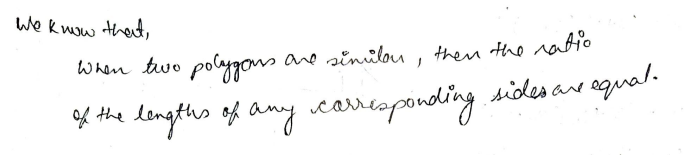 We know that,
When two polygons are similar, then the ratio
of the lengths of any corresponding sides are equal.